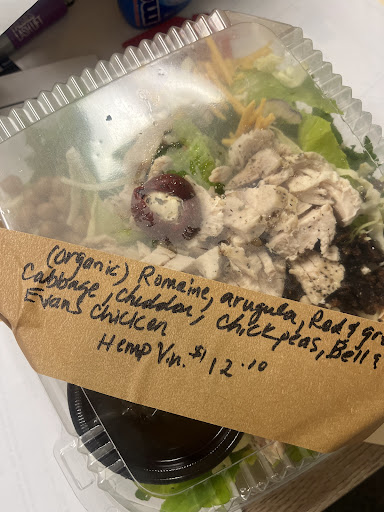 (organic) Romaine, arugula, Red & gr
Cabbage, cheddar, chickpeas, Bell &
Evans chicken
Hemp Vin. $12.10